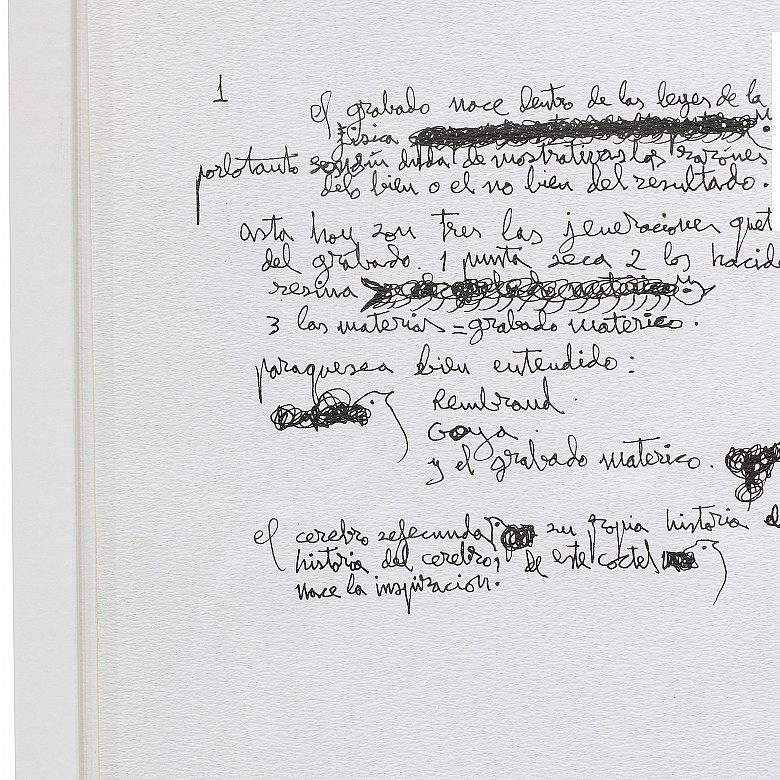 1
el grabado nace dentro de las leyes de la
física
porlotanto son sin duda demostrativas las razones
delo bien o el no bien del resultado.
asta hoy son tres las jeneraciones que
del grabado. 1 punta seca 2 los hacid
resina
3 las materias = grabado materico.
paraquesea bien entendido:
Rembrand.
Goya.
y el grabado materico.
el cerebro sefecunda su propia historia
historia del cerebro; de este coctel
nace la inspiracion.